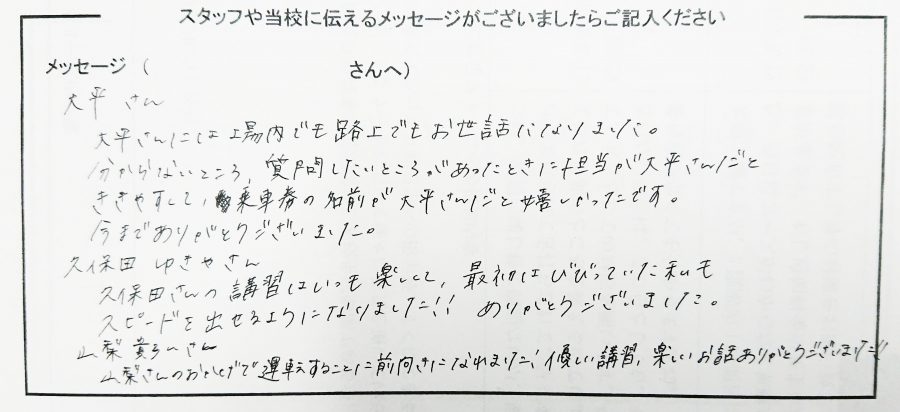 スタッフや当校に伝えるメッセージがございましたらご記入ください
メッセージ ( さんへ)
大平 さん
大平さんには場内でも路上でもお世話になりました。
分からないところ、質問したいところがあったときに担当が大平さんだと
ききやすくて、乗車券の名前が大平さんだと嬉しかったです。
今までありがとうございました。
久保田 ゆきやさん
久保田さんの講習はいつも楽しくて、最初はびびっていた私も
スピードを出せるようになりました!! ありがとうございました。
山梨 さん
山梨さんのおかげで運転することに前向きになれました! 優しい講習、楽しいお話ありがとうございました!!